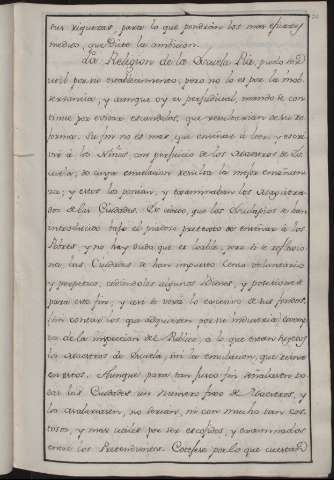 sus riquezas, para lo que pondrán los mas eficazes
medios, que dicte la ambicion.
La Religion de la Escuela Pia, pudo ser
util por su establecimiento, pero no lo es por la inob-
servancia; y aunque oy es perjudicial, mando se con-
tinue por evitar escandalos, que resultarian de su re-
forma. Su fin no es mas, que enseñar á leer, y escri-
vir á los Niños, con perjuicio de los Maestros de Es-
cuela, de cuya emulacion resulta la mejor enseñan-
za; y estos los ponian, y examinaban los Magistra-
dos de las Ciudades. Es cierto, que los Esculapios se han
introducido bajo el piadoso pretexto de enseñar á los
Pobres y no hay duda que es loable, pero si se reflexio-
na, las Ciudades se han impuesto Censo voluntario
y perpetuo, cediendoles algunos bienes, y posesiones
para este fin, y asi se verá lo excesivo de sus fondos,
sin contar los que adquieren por su industria
de la inspeccion del Publico, á lo que estan sujetos
los Maestros de Escuela, ni la emulacion, que reine
en estos. Aunque para tan justo fin señalasen to-
das las Ciudades un numero fixo de Maestros, y
los asalariasen, no serian, ni con mucho tan cos-
tosos, y mas utiles por ser escogidos, y examinados
entre los Pretendientes. Cotejese por lo que cuestan